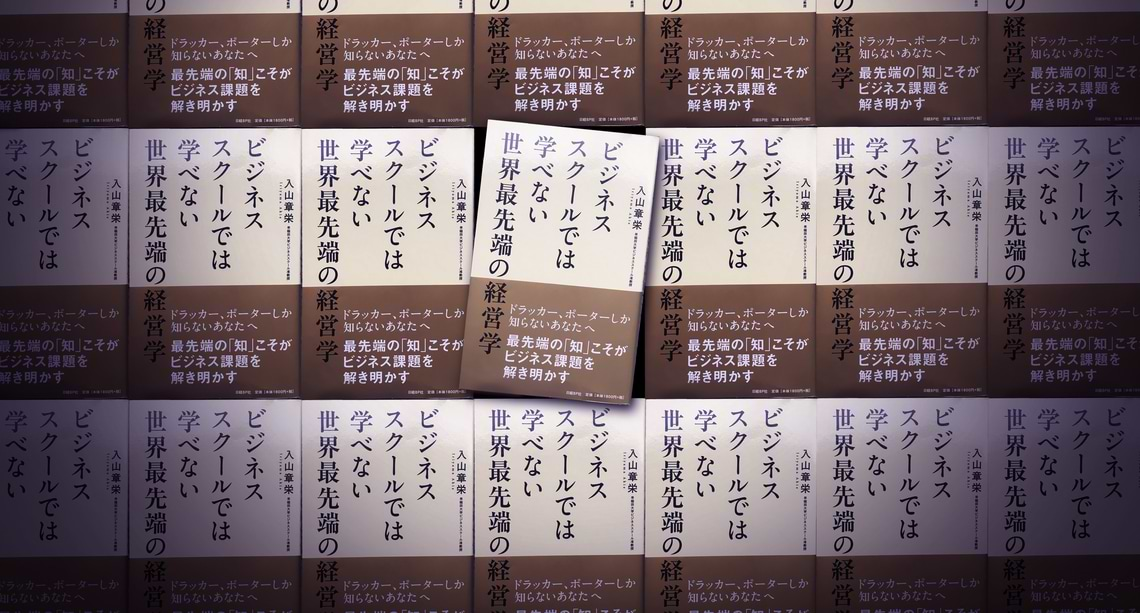 ビジネス
スクールでは
学べない
世界最先端の経営学
入山章栄
ドラッカー、ポーターしか
知らないあなたへ
最先端の「知」こそが
ビジネス課題を
解き明かす
日経BP社 定価 [本体1800円+税]